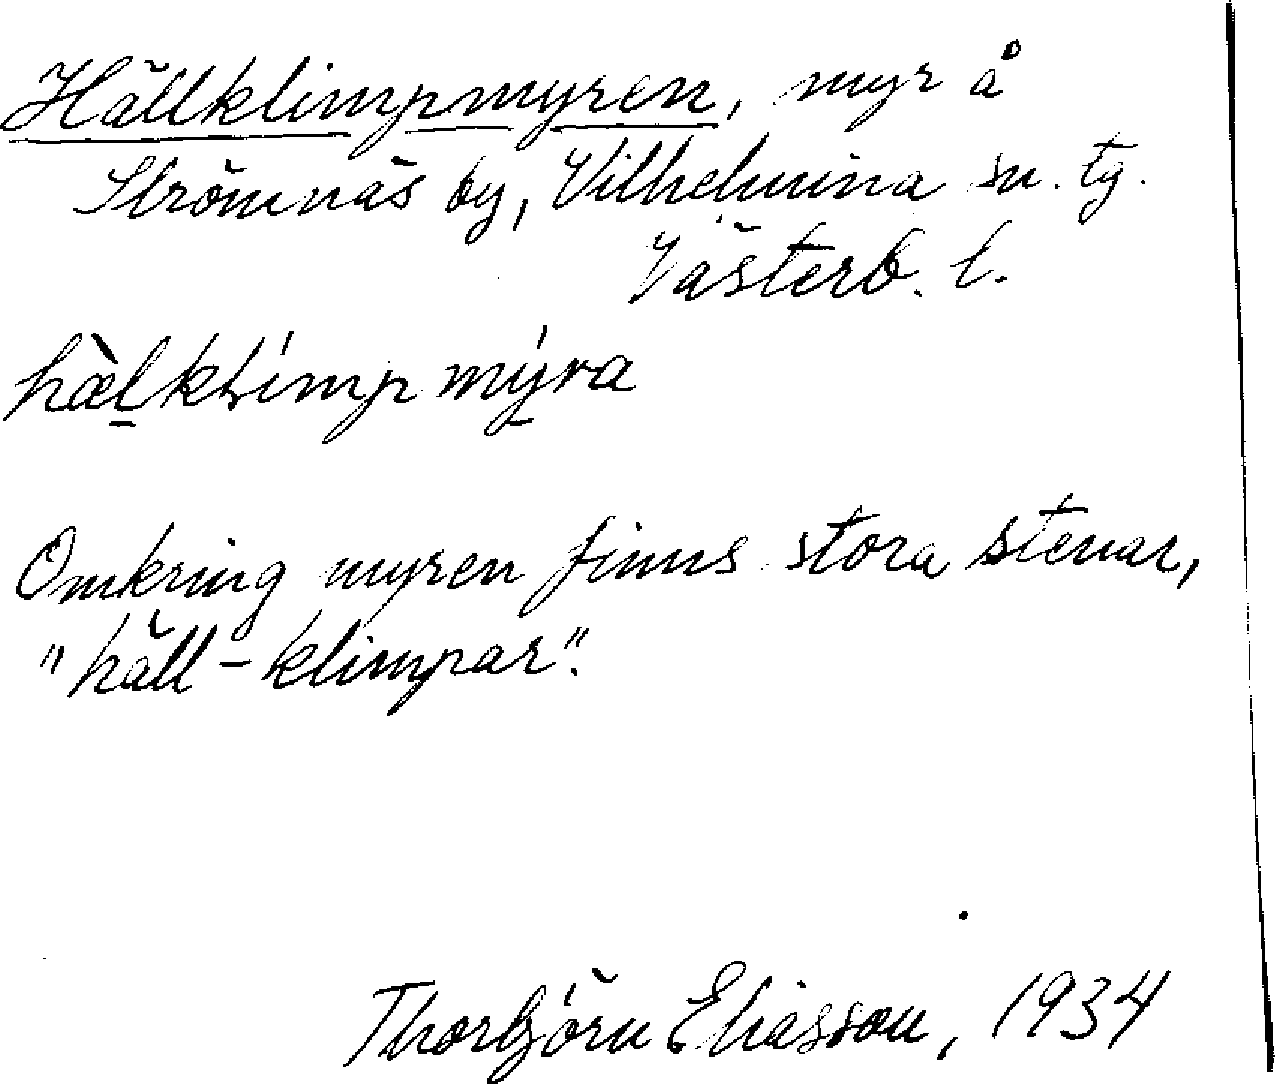 Hällklimpmyren, myr å
Strömnäs by, Vilhelmina sn. tg.
Västerb. l.
hæ̀l̲kḷímp mý̲ra
Omkring myren finns stora stenar,
"häll-klimpar".
Thorbjörn Eliasson, 1934